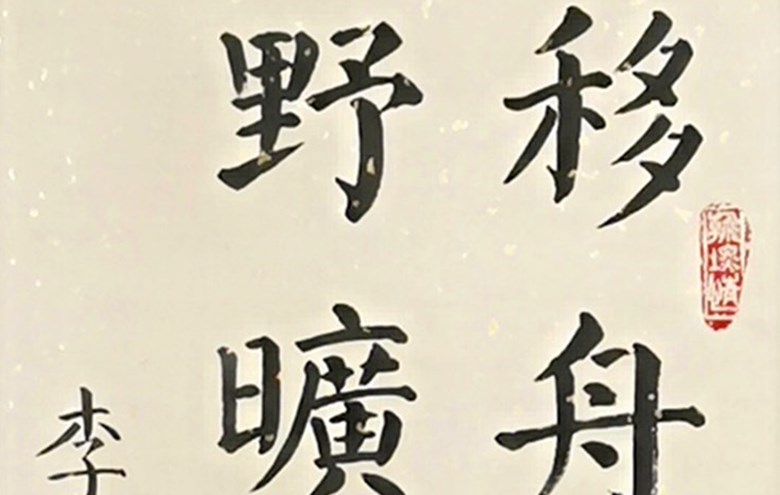 移舟
野曠
李